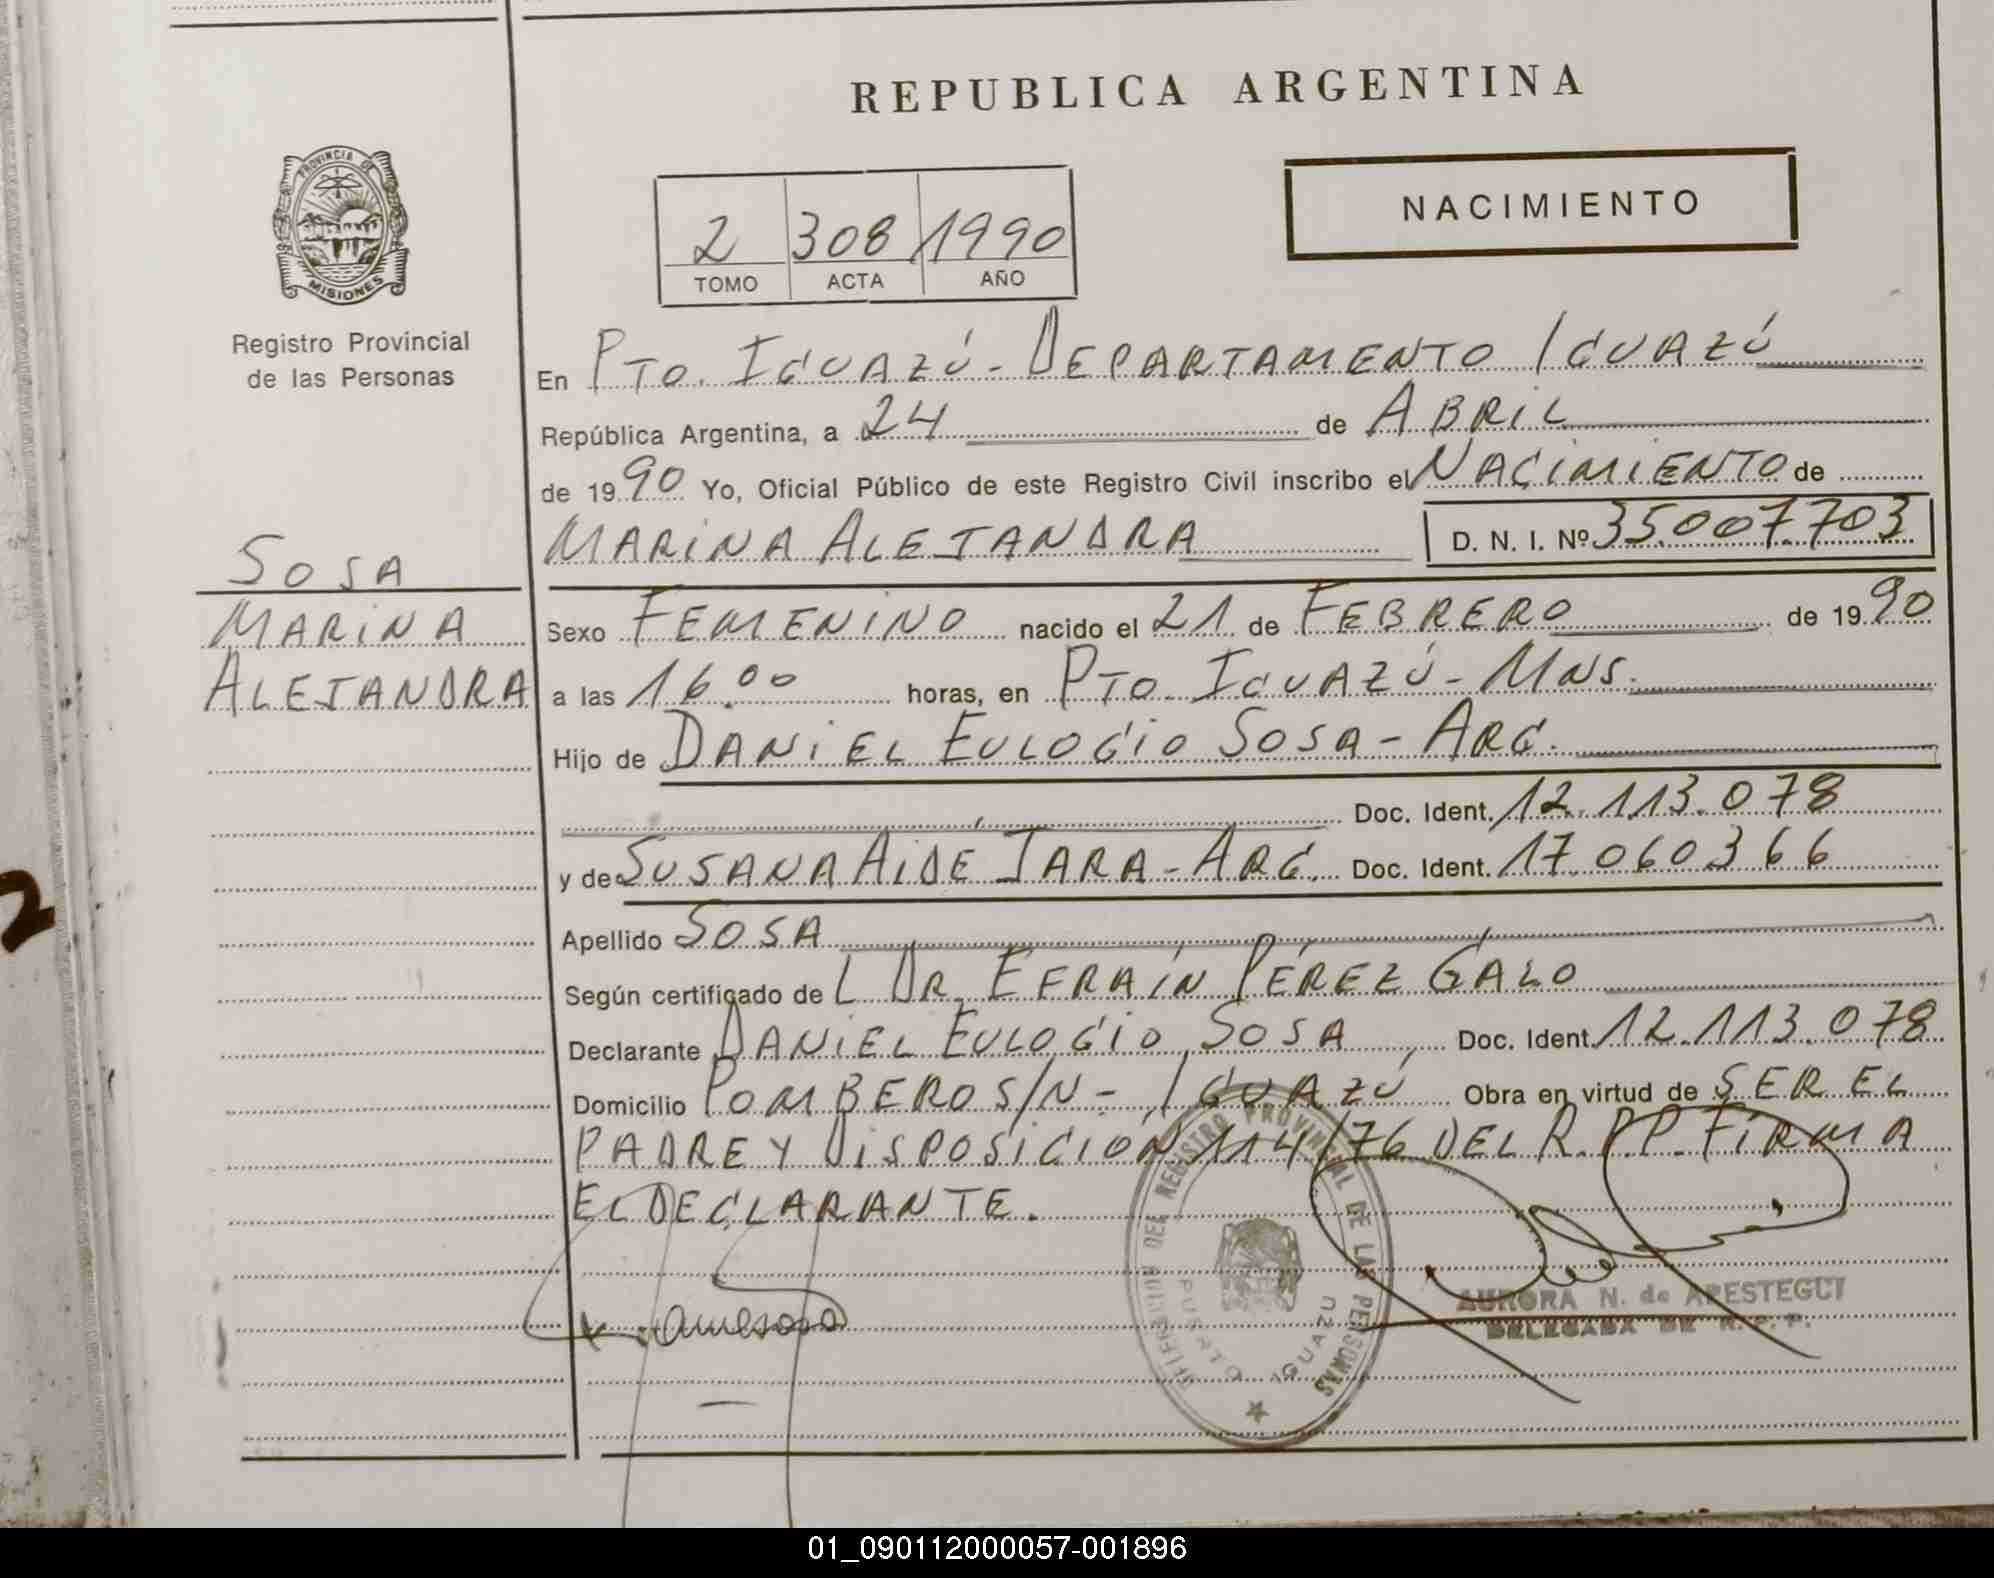 REPUBLICA ARGENTINA
NACIMIENTO
PROVINCIA DE
MISIONES
Registro Provincial
de las Personas
2 308 1990
TOMO ACTA AÑO
En PTO. IGUAZÚ - DEPARTAMENTO IGUAZÚ
República Argentina, a 24 de ABRIL
de 1990 Yo, Oficial Público de este Registro Civil inscribo el NACIMIENTO de
MARINA ALEJANDRA D. N. I. Nº 35.007.703
SOSA
MARINA
ALEJANDRA
Sexo FEMENINO nacido el 21 de FEBRERO de 1990
a las 16.00 horas, en PTO. IGUAZÚ - MNS.
Hijo de DANIEL EULOGIO SOSA - ARG.
Doc. Ident. 12.113.078
y de SUSANA AIDÉ JARA - ARG. Doc. Ident. 17.060366
Apellido SOSA
Según certificado de L DR. EFRAÍN PÉREZ GALO
Declarante DANIEL EULOGIO SOSA, Doc. Ident. 12.113.078
Domicilio POMBERO S/N - IGUAZÚ Obra en virtud de SER EL
PADRE Y DISPOSICIÓN 114/76 DEL R.P.P. FIRMA
EL DECLARANTE.
DEL REGISTRO PROVINCIAL DE LAS PERSONAS
PUERTO IGUAZU
AURORA N. de APESTEGUI
DELEGADA DE R. P. P.
2
01_090112000057-001896